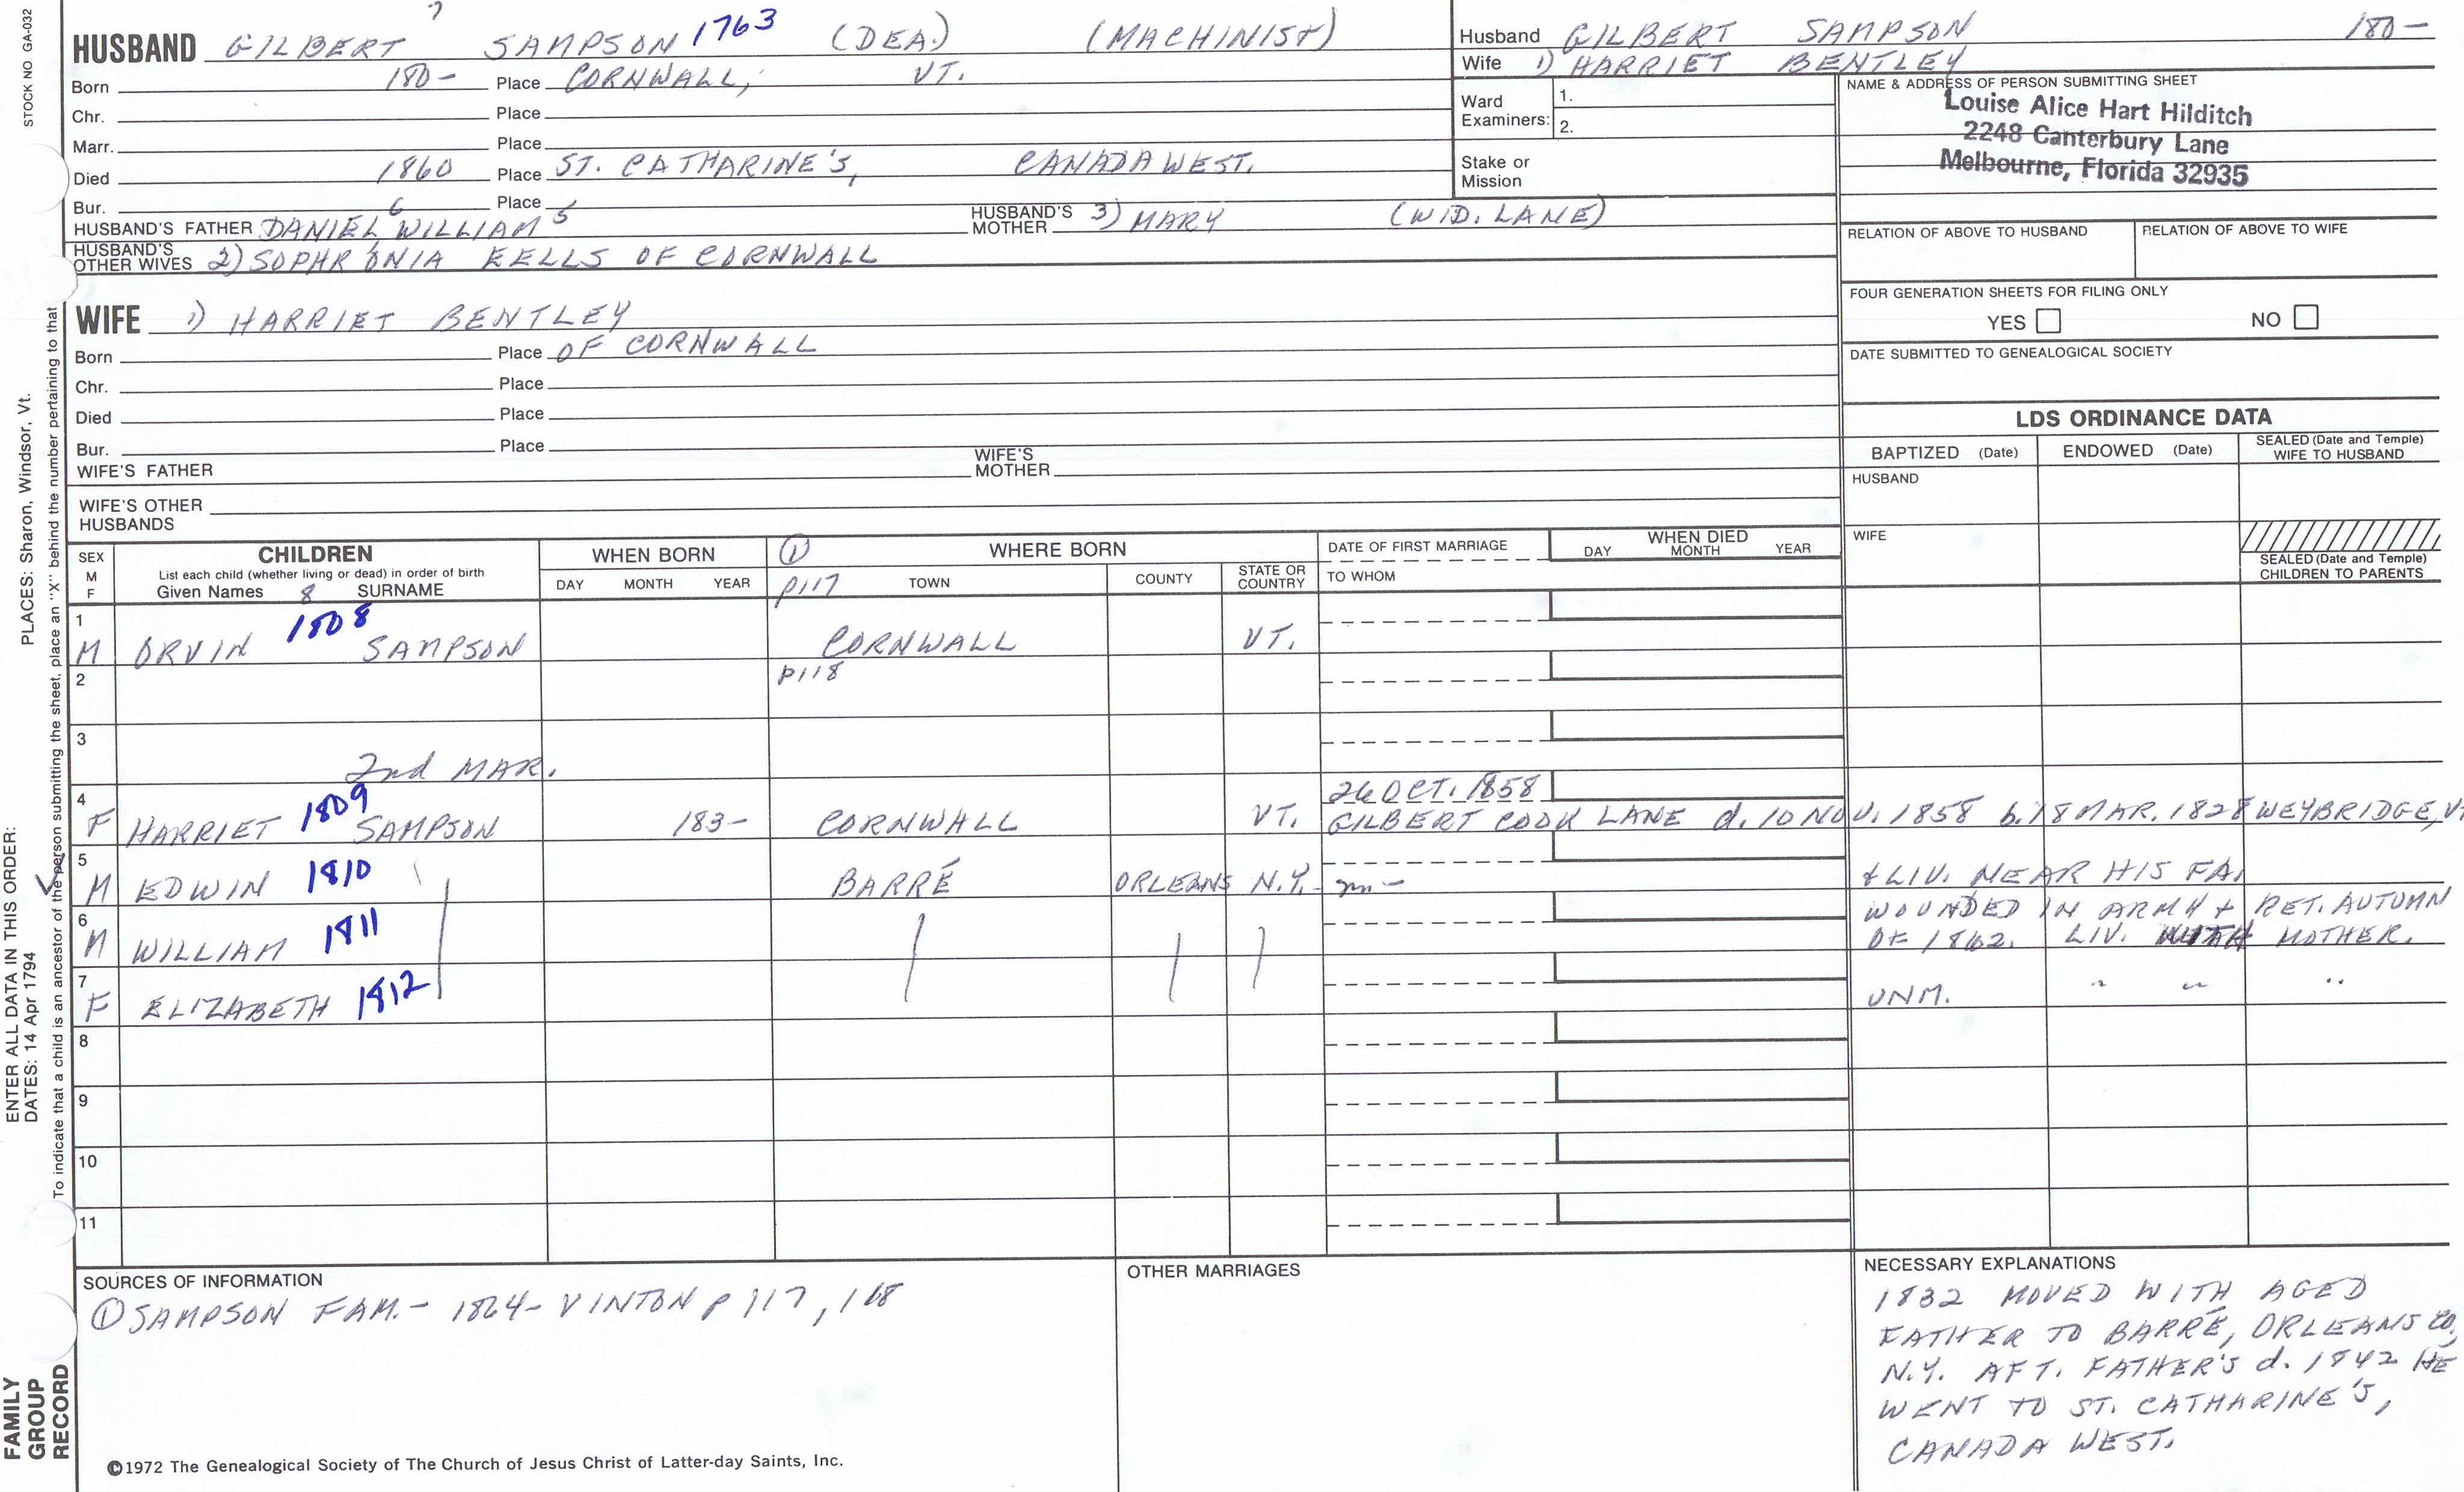 STOCK NO GA-032
7
HUSBAND GILBERT SAMPSON 1763 (DEA.) (MACHINIST)
Born 180- Place CORNWALL, VT.
Chr. Place
Marr. Place
Died 1860 Place ST. CATHARINE'S, CANADA WEST.
Bur. Place
HUSBAND'S FATHER DANIEL 6 WILLIAM 5 HUSBAND'S MOTHER 3) MARY (WID. LANE)
HUSBAND'S OTHER WIVES 2) SOPHRONIA EELLS OF CORNWALL
WIFE 1) HARRIET BENTLEY
Born Place OF CORNWALL
Chr. Place
Died Place
Bur. Place
WIFE'S FATHER WIFE'S MOTHER
WIFE'S OTHER HUSBANDS
Husband GILBERT SAMPSON 180-
Wife 1) HARRIET BENTLEY
Ward Examiners: 1.
2.
Stake or Mission
NAME & ADDRESS OF PERSON SUBMITTING SHEET
Louise Alice Hart Hilditch
2248 Canterbury Lane
Melbourne, Florida 32935
RELATION OF ABOVE TO HUSBAND RELATION OF ABOVE TO WIFE
FOUR GENERATION SHEETS FOR FILING ONLY
YES NO
DATE SUBMITTED TO GENEALOGICAL SOCIETY
LDS ORDINANCE DATA
BAPTIZED (Date) ENDOWED (Date) SEALED (Date and Temple) WIFE TO HUSBAND
HUSBAND
WIFE
SEALED (Date and Temple) CHILDREN TO PARENTS
SEX M F
CHILDREN
List each child (whether living or dead) in order of birth
Given Names 8 SURNAME
WHEN BORN
DAY MONTH YEAR
① WHERE BORN
p117 TOWN COUNTY STATE OR COUNTRY
DATE OF FIRST MARRIAGE
TO WHOM
WHEN DIED
DAY MONTH YEAR
1 M ORVIN 1808 SAMPSON CORNWALL VT.
2 p118
3 2nd MAR.
4 26 OCT. 1858
F HARRIET 1809 SAMPSON 183- CORNWALL VT. GILBERT COOK LANE d. 10 NOV. 1858 b. 18 MAR. 1828 WEYBRIDGE, VT
5 M EDWIN 1810 BARRÉ ORLEANS N.Y. m- + LIV. NEAR HIS FA.
6 M WILLIAM 1811 WOUNDED IN ARMY + RET. AUTUMN
OF 1862. LIV. WITH MOTHER.
7 F ELIZABETH 1812 UNM. " " "
8
9
10
11
SOURCES OF INFORMATION
① SAMPSON FAM. - 1864 - VINTON p 117, 118
OTHER MARRIAGES
NECESSARY EXPLANATIONS
1832 MOVED WITH AGED
FATHER TO BARRÉ, ORLEANS CO,
N.Y. AFT. FATHER'S d. 1842 HE
WENT TO ST. CATHARINE'S,
CANADA WEST.
©1972 The Genealogical Society of The Church of Jesus Christ of Latter-day Saints, Inc.
PLACES: Sharon, Windsor, Vt.
To indicate that a child is an ancestor of the person submitting the sheet, place an "X" behind the number pertaining to that
ENTER ALL DATA IN THIS ORDER:
DATES: 14 Apr 1794
FAMILY
GROUP
RECORD